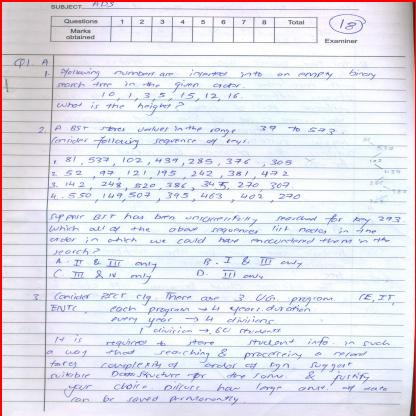 SUBJECT ADS
Questions 1 2 3 4 5 6 7 8 Total
Marks obtained
18
Examiner
Q1. A
1. Following numbers are inserted into an empty binary
search tree in the given order.
10, 1, 3, 5, 15, 12, 16.
What is the height?
2. A BST stores values in the range 37 to 573.
Consider following sequence of keys.
1. 81, 537, 102, 439, 285, 376, 305
2. 52, 97, 121, 195, 242, 381, 472
3. 142, 248, 520, 386, 345, 270, 307
4. 550, 149, 507, 395, 463, 402, 270
Suppose BST has been unsuccessfully searched for key 273
Which all of the above sequences list nodes in the
order in which we could have encountered them in the
search?
A. II & III only B. I & III only
C. III & IV only D. III only
3. Consider clg. There are 3 UG. program IT,
ENTC. each program → 4 years duration
every year → 4 divisions
division → 60 students
It is required to store student info in such
a way that searching & processing a record
takes complexity of order of logn. Suggest
suitable Data structure for the same & justify
your choice. Discuss how large amt. of data
can be saved